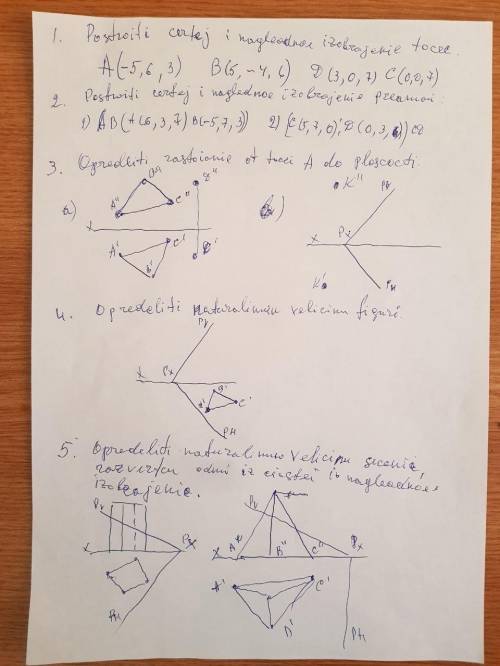 1. Postroiti certej i nagleadnoe izobrajenie tocec.
A(-5,6,3) B(5,-4,6) D(3,0,7) C(0,0,7)
2. Postroiti certej i nagleadnoe izobrajenie preamoi:
1) AB (A(6,3,7) B(-5,7,3)) 2) [C(5,7,0); D(0,3,6)] CD
3. Opredeliti rastoianie ot tocci A do ploscocti.
a) A" B" C" D" X A' B' C' D'
b) K" Pv X Px K' PH
4. Opredeliti naturalinuiu velicinu figuri.
Pv
X Px
A' B' C'
PH
5. Opredeliti naturalinuiu velicinu secenia,
razvertcu odnoi iz ciastei i nagleadnoe
izobrajenie.
Pv X Px PH
Pv X A" B" C" Px A' C' D' PH